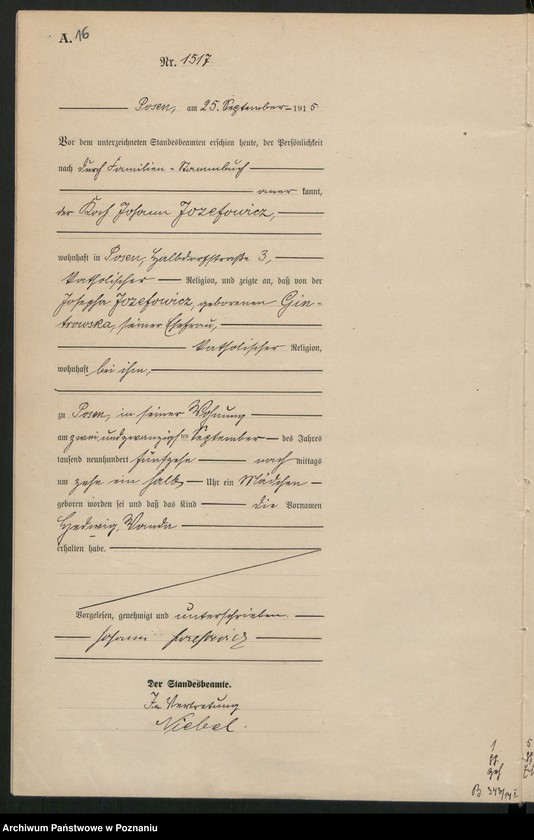 A. 16
Nr. 1517
Posen, am 25. September 1915
Vor dem unterzeichneten Standesbeamten erschien heute, der Persönlichkeit
nach durch Familien-Stammbuch
aner kannt,
der Koch Johann Jozefowicz,
wohnhaft in Posen, Halbdorfstraße 3,
katholischer Religion, und zeigte an, daß von der
Josepha Jozefowicz, geborenen Gin-
trowska, seiner Ehefrau,
katholischer Religion,
wohnhaft bei ihm,
zu Posen, in seiner Wohnung
am zweiundzwanzigsten September des Jahres
tausend neunhundert fünfzehn nach mittags
um zehn ein halb Uhr ein Mädchen
geboren worden sei und daß das Kind die Vornamen
Hedwig, Wanda
erhalten habe.
Vorgelesen, genehmigt und unterschrieben.
Johann Jozefowicz
Der Standesbeamte.
In Vertretung
Niebel.
1
B. 343/14
Archiwum Państwowe w Poznaniu